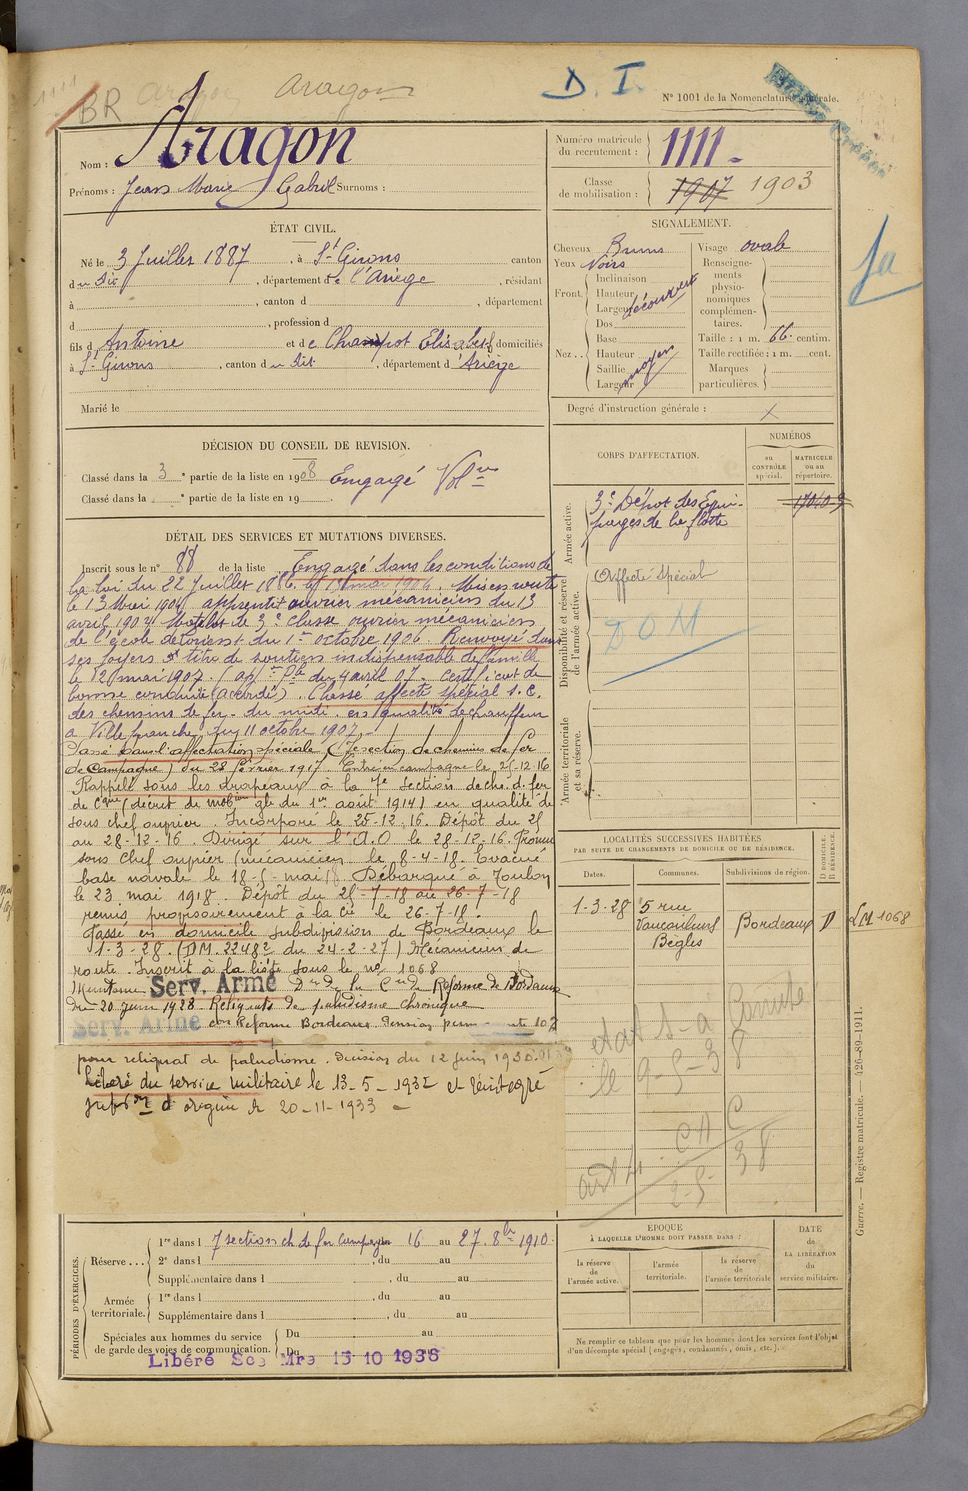 1111
BR Aragon Aragon
D. I.
N° 1001 de la Nomenclature générale.
Nom : Aragon
Prénoms : Jean Marie Gabriel Surnoms :
Numéro matricule du recrutement : 1111
Classe de mobilisation : 1907 1903
ÉTAT CIVIL.
Né le 3 Juillet 1887, à St Girons canton
du dit, département de l'Ariège, résidant
à, canton d, département
d, profession d
fils d Antoine et de Élisabeth domiciliés
à St Girons, canton du dit, département d'Ariège
Marié le
SIGNALEMENT.
Cheveux Bruns
Yeux Noirs
Front. Inclinaison
Hauteur
Largeur
découvert
Nez.. Dos
Base
Hauteur
Saillie
Largeur
moyen
Visage ovale
Renseignements physionomiques complémentaires.
Taille : 1 m. 66 centim.
Taille rectifiée : 1 m. cent.
Marques particulières.
Degré d'instruction générale : X
Ja
DÉCISION DU CONSEIL DE REVISION.
Classé dans la 3e partie de la liste en 1908 Engagé Volre
Classé dans la e partie de la liste en 19
CORPS D'AFFECTATION.
NUMÉROS
au CONTRÔLE spécial.
MATRICULE ou au répertoire.
Armée active.
3e Dépôt des Equi-
pages de la flotte
Disponibilité et réserve de l'armée active.
Affecté Spécial
DOM
Armée territoriale et sa réserve.
DÉTAIL DES SERVICES ET MUTATIONS DIVERSES.
Inscrit sous le n° 88 de la liste Engagé dans les conditions de
la Loi du 22 Juillet 1886. le 13 mai 1904. Mis en route
le 13 Mai 1904 apprenti ouvrier mécanicien du 13
avril 1904 Matelot de 3e classe ouvrier mécanicien
de l'école de Lorient du 1er octobre 1906 Renvoyé dans
ses foyers à titre de soutien indispensable de famille
le 12 mai 1907. du 4 avril 07. Certificat de
bonne conduite (accordé). Classé affecté spécial S. C.
des chemins de fer du midi en qualité de chauffeur
à Villefranche, du 11 octobre 1907.
Passé dans l'affectation spéciale (7e section de chemins de fer
de Campagne) du 28 février 1917. Entré en campagne le 25-12-16
Rappelé sous les drapeaux à la 7e Section de che. d. fer
de Cgne (décret de mobion gle du 1er août 1914) en qualité de
sous chef ouvrier. Incorporé le 25-12-16. Dépôt du 25
au 28-12-16. Dirigé sur l'A.O le 28-12-16. Promu
sous chef ouvrier (mécanicien le 8-4-18. Évacué
base navale le 18-5-mai 18. Débarqué à Toulon
le 23 mai 1918. Dépôt du 25-7-18 au 26-7-18
remis provisoirement à la Cie le 26-7-18.
Passé en domicile subdivision de Bordeaux le
1-3-28. (DM. 22482 du 24-2-27) Mécanicien de
route. Inscrit à la liste sous le no 1068
Maintenu Serv. Armé Dn de la Con de Réforme de Bordeaux
du 20 Juin 1928. Reliquats de paludisme chronique
Serv. Armé con Réforme Bordeaux. Pension permanente 10%
pour reliquat de paludisme. Décision du 12 Juin 1930.
Libéré du service militaire le 13-5-1932 et réintégré
subdon d'origine le 20-11-1933
LOCALITÉS SUCCESSIVES HABITÉES
PAR SUITE DE CHANGEMENTS DE DOMICILE OU DE RÉSIDENCE.
Dates. Communes. Subdivisions de région. D DOMICILE. R RÉSIDENCE.
1-3-28 5 rue
Vaucouleurs Bordeaux D LM 1068
Bègles
état S-a Comité
le 9-5-38
art 4. CAC
2-5-38
PÉRIODES D'EXERCICES.
Réserve...
1re dans l 7 section ch. de fer Campagne 16 au 27. 8bre 1910.
2e dans l, du au
Supplémentaire dans l, du au
Armée territoriale.
1re dans l, du au
Supplémentaire dans l, du au
Spéciales aux hommes du service de garde des voies de communication.
Du au
Du au
Libéré Sce Mre 15 10 1938
ÉPOQUE
À LAQUELLE L'HOMME DOIT PASSER DANS :
la réserve de l'armée active.
l'armée territoriale.
la réserve de l'armée territoriale
DATE de LA LIBÉRATION du service militaire.
Ne remplir ce tableau que pour les hommes dont les services font l'objet
d'un décompte spécial (engagés, condamnés, omis, etc.).
Guerre. — Registre matricule. — 426-89-1911.